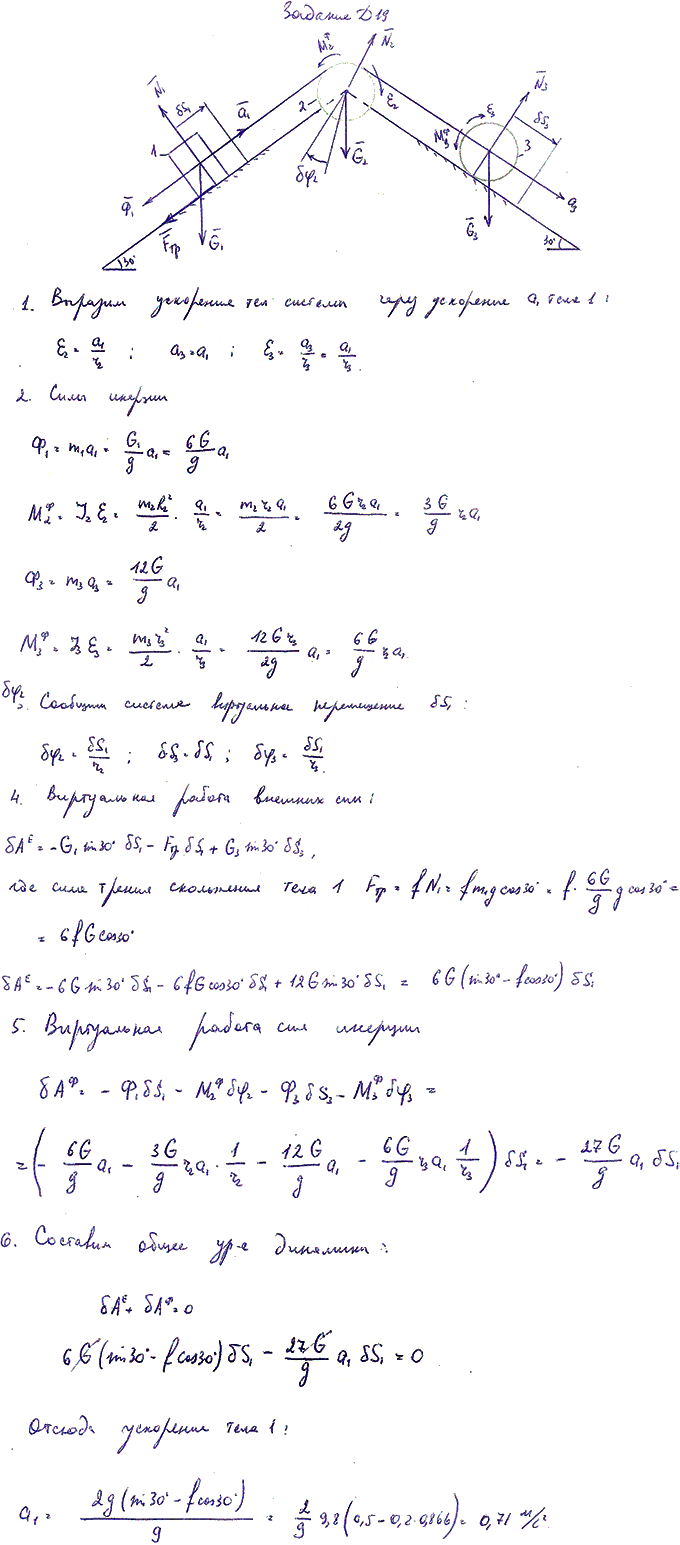 Задание Д19
M₂ᶲ N̄₂
N̄₁ δS₁ ā₁ 2 ε₂ N̄₃
1 δφ₂ Ḡ₂ M₃ᶲ ε₃ δS₃ 3
Φ̄₁ F̄тр Ḡ₁ Ḡ₃ a₃
30° 30°
1. Выразим ускорение тел системы через ускорение a₁ тела 1:
ε₂ = a₁/r₂ ; a₃ = a₁ ; ε₃ = a₃/r₃ = a₁/r₃.
2. Силы инерции
Φ₁ = m₁a₁ = G₁/g a₁ = 6G/g a₁
M₂ᶲ = J₂ ε₂ = m₂R₂²/2 · a₁/r₂ = m₂r₂a₁/2 = 6Gr₂a₁/2g = 3G/g r₂a₁
Φ₃ = m₃a₃ = 12G/g a₁
M₃ᶲ = J₃ ε₃ = m₃r₃²/2 · a₁/r₃ = 12Gr₃/2g a₁ = 6G/g r₃a₁.
δφ₂
3. Сообщим системе виртуальное перемещение δS₁ :
δφ₂ = δS₁/r₂ ; δS₃ = δS₁ ; δφ₃ = δS₁/r₃.
4. Виртуальная работа внешних сил:
δAᴱ = -G₁ sin30° δS₁ - Fтр δS₁ + G₃ sin30° δS₃ ,
где сила трения скольжения тела 1 Fтр = fN₁ = fm₁g cos30° = f · 6G/g g cos30° =
= 6fG cos30°
δAᴱ = -6G sin30° δS₁ - 6fG cos30° δS₁ + 12G sin30° δS₁ = 6G(sin30° - f cos30°) δS₁
5. Виртуальная работа сил инерции
δAᶲ = - Φ₁δS₁ - M₂ᶲδφ₂ - Φ₃δS₃ - M₃ᶲδφ₃ =
= (- 6G/g a₁ - 3G/g r₂a₁ · 1/r₂ - 12G/g a₁ - 6G/g r₃a₁ 1/r₃) δS₁ = - 27G/g a₁ δS₁
6. Составим общее ур-е динамики:
δAᴱ + δAᶲ = 0
6G(sin30° - f cos30°) δS₁ - 27G/g a₁ δS₁ = 0
Отсюда ускорение тела 1:
a₁ = 2g(sin30° - f cos30°)/9 = 2/9 9,8(0,5 - 0,2·0,866) = 0,71 м/с²